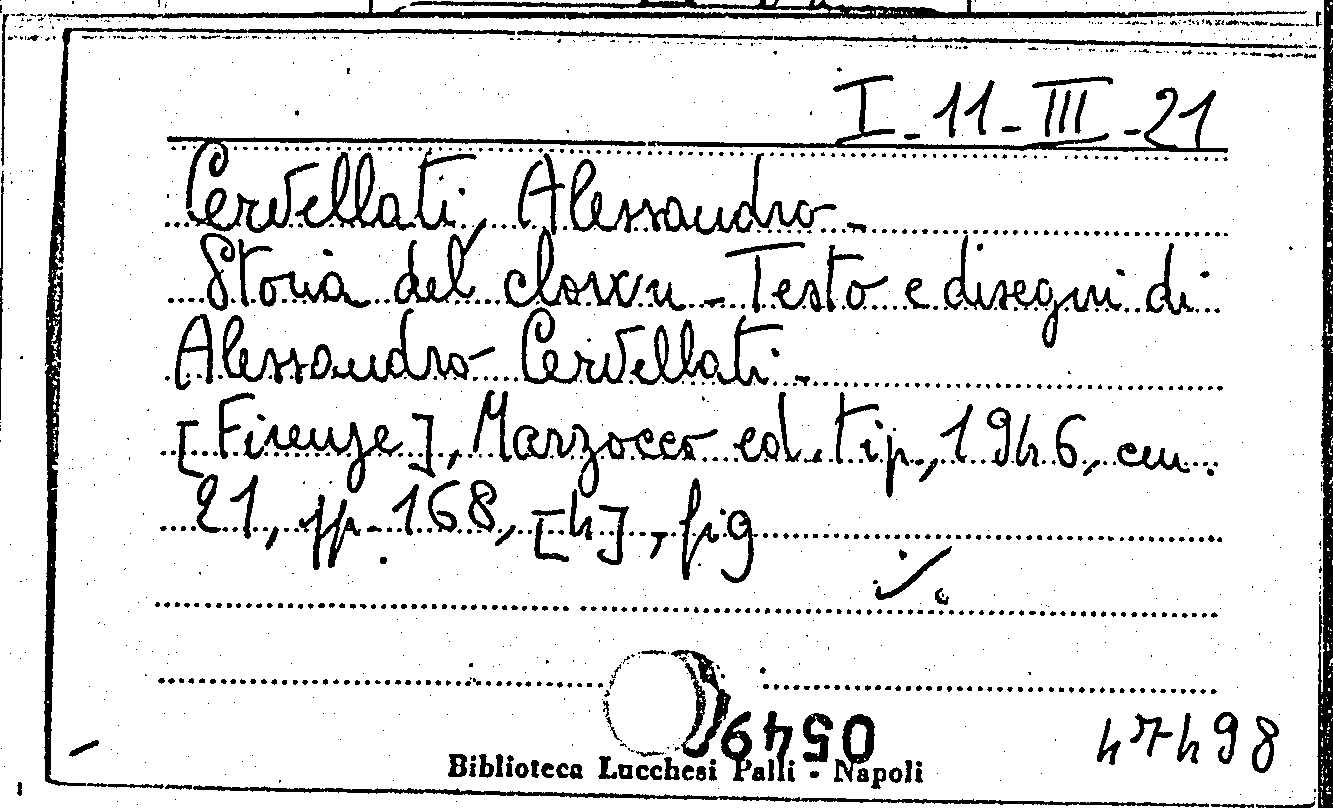 I-11-III-21
Cervellati, Alessandro-
Storia del clown - Testo e disegni di
Alessandro Cervellati -
[Firenze], Marzocco ed. tip., 1946, cm.
21, pp. 168, [4], fig
./.
47498
Biblioteca Lucchesi Palli - Napoli